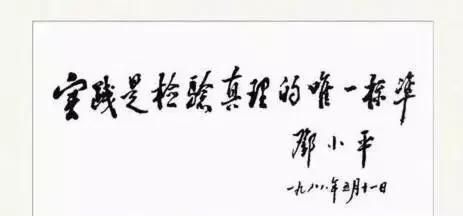 实践是检验真理的唯一标准
邓小平
一九八八年五月十一日